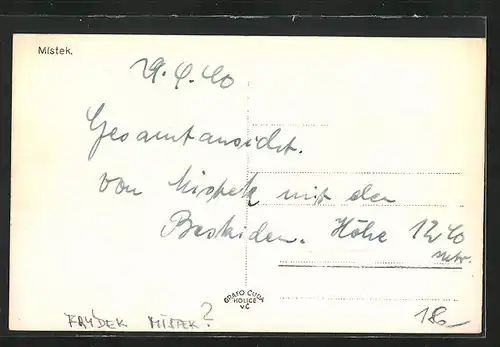 Místek.
29.4.40
Gesamtansicht.
von Mistek mit den
Beskiden. Höhe 1240
Metr.
GRAFO ČUDA
HOLICE
v Č
FRÝDEK MÍSTEK?
180